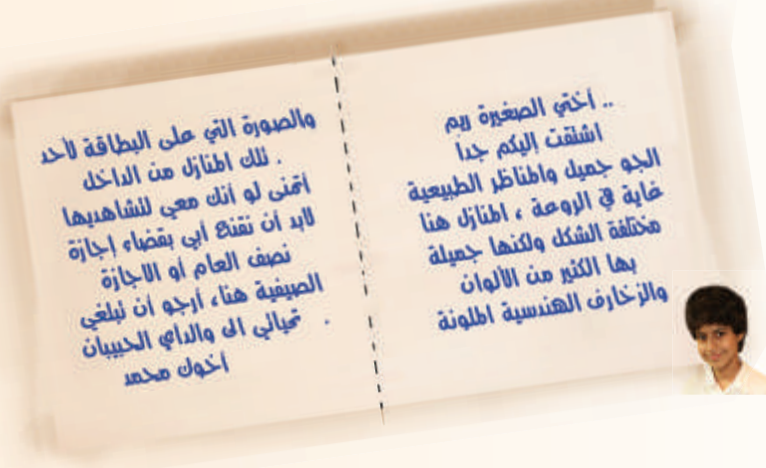 أختي الصغيرة ريم ..
اشتقت إليكم جداً
الجو جميل والمناظر الطبيعية
غاية في الروعة ، المنازل هنا
مختلفة الشكل ولكنها جميلة
بها الكثير من الألوان
والزخارف الهندسية الملونة
والصورة التي على البطاقة لأحد
تلك المنازل من الداخل .
أتمنى لو أنك معي لتشاهديها
لابد أن نقنع أبي بقضاء إجازة
نصف العام أو الاجازة
الصيفية هنا، أرجو أن تبلغي
تحياتي الى والداي الحبيبان .
أخوك محمد